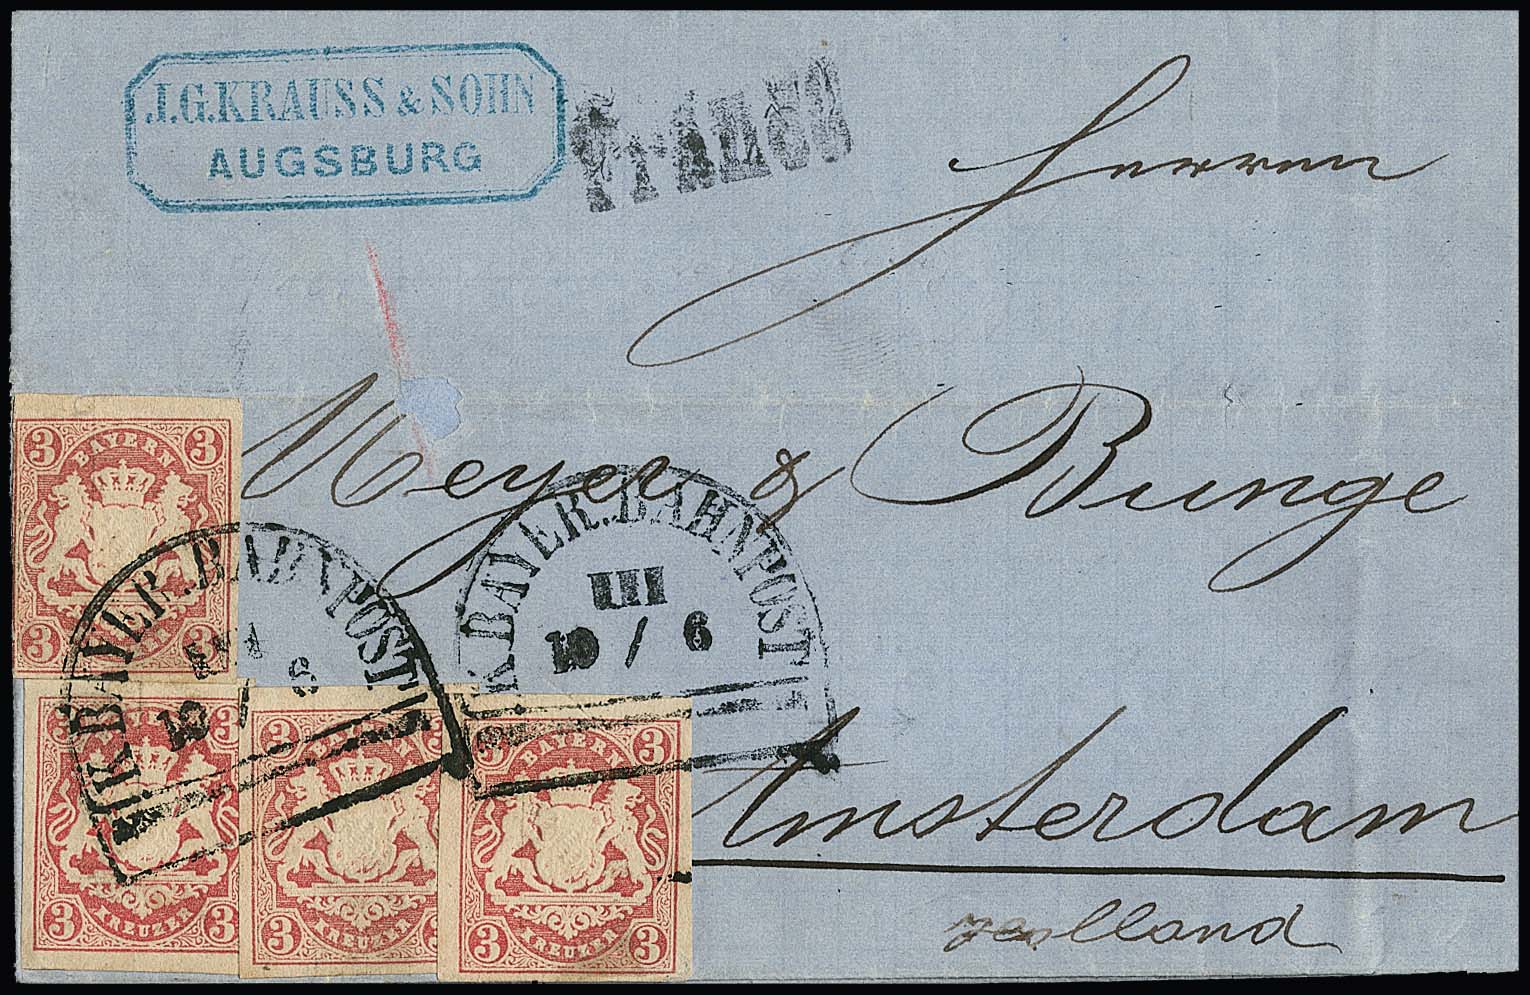 J.G.KRAUSS & SOHN
AUGSBURG
Franco
Herren
Meyer & Bunge
Amsterdam
Holland
3 BAYERN 3
3 3
K.BAYER.BAHNPOST
10 / 6
K.BAYER.BAHNPOST
III
10 / 6
3 BAYERN 3
3 KREUZER 3
3 BAYERN 3
3 KREUZER 3
3 BAYERN 3
3 KREUZER 3